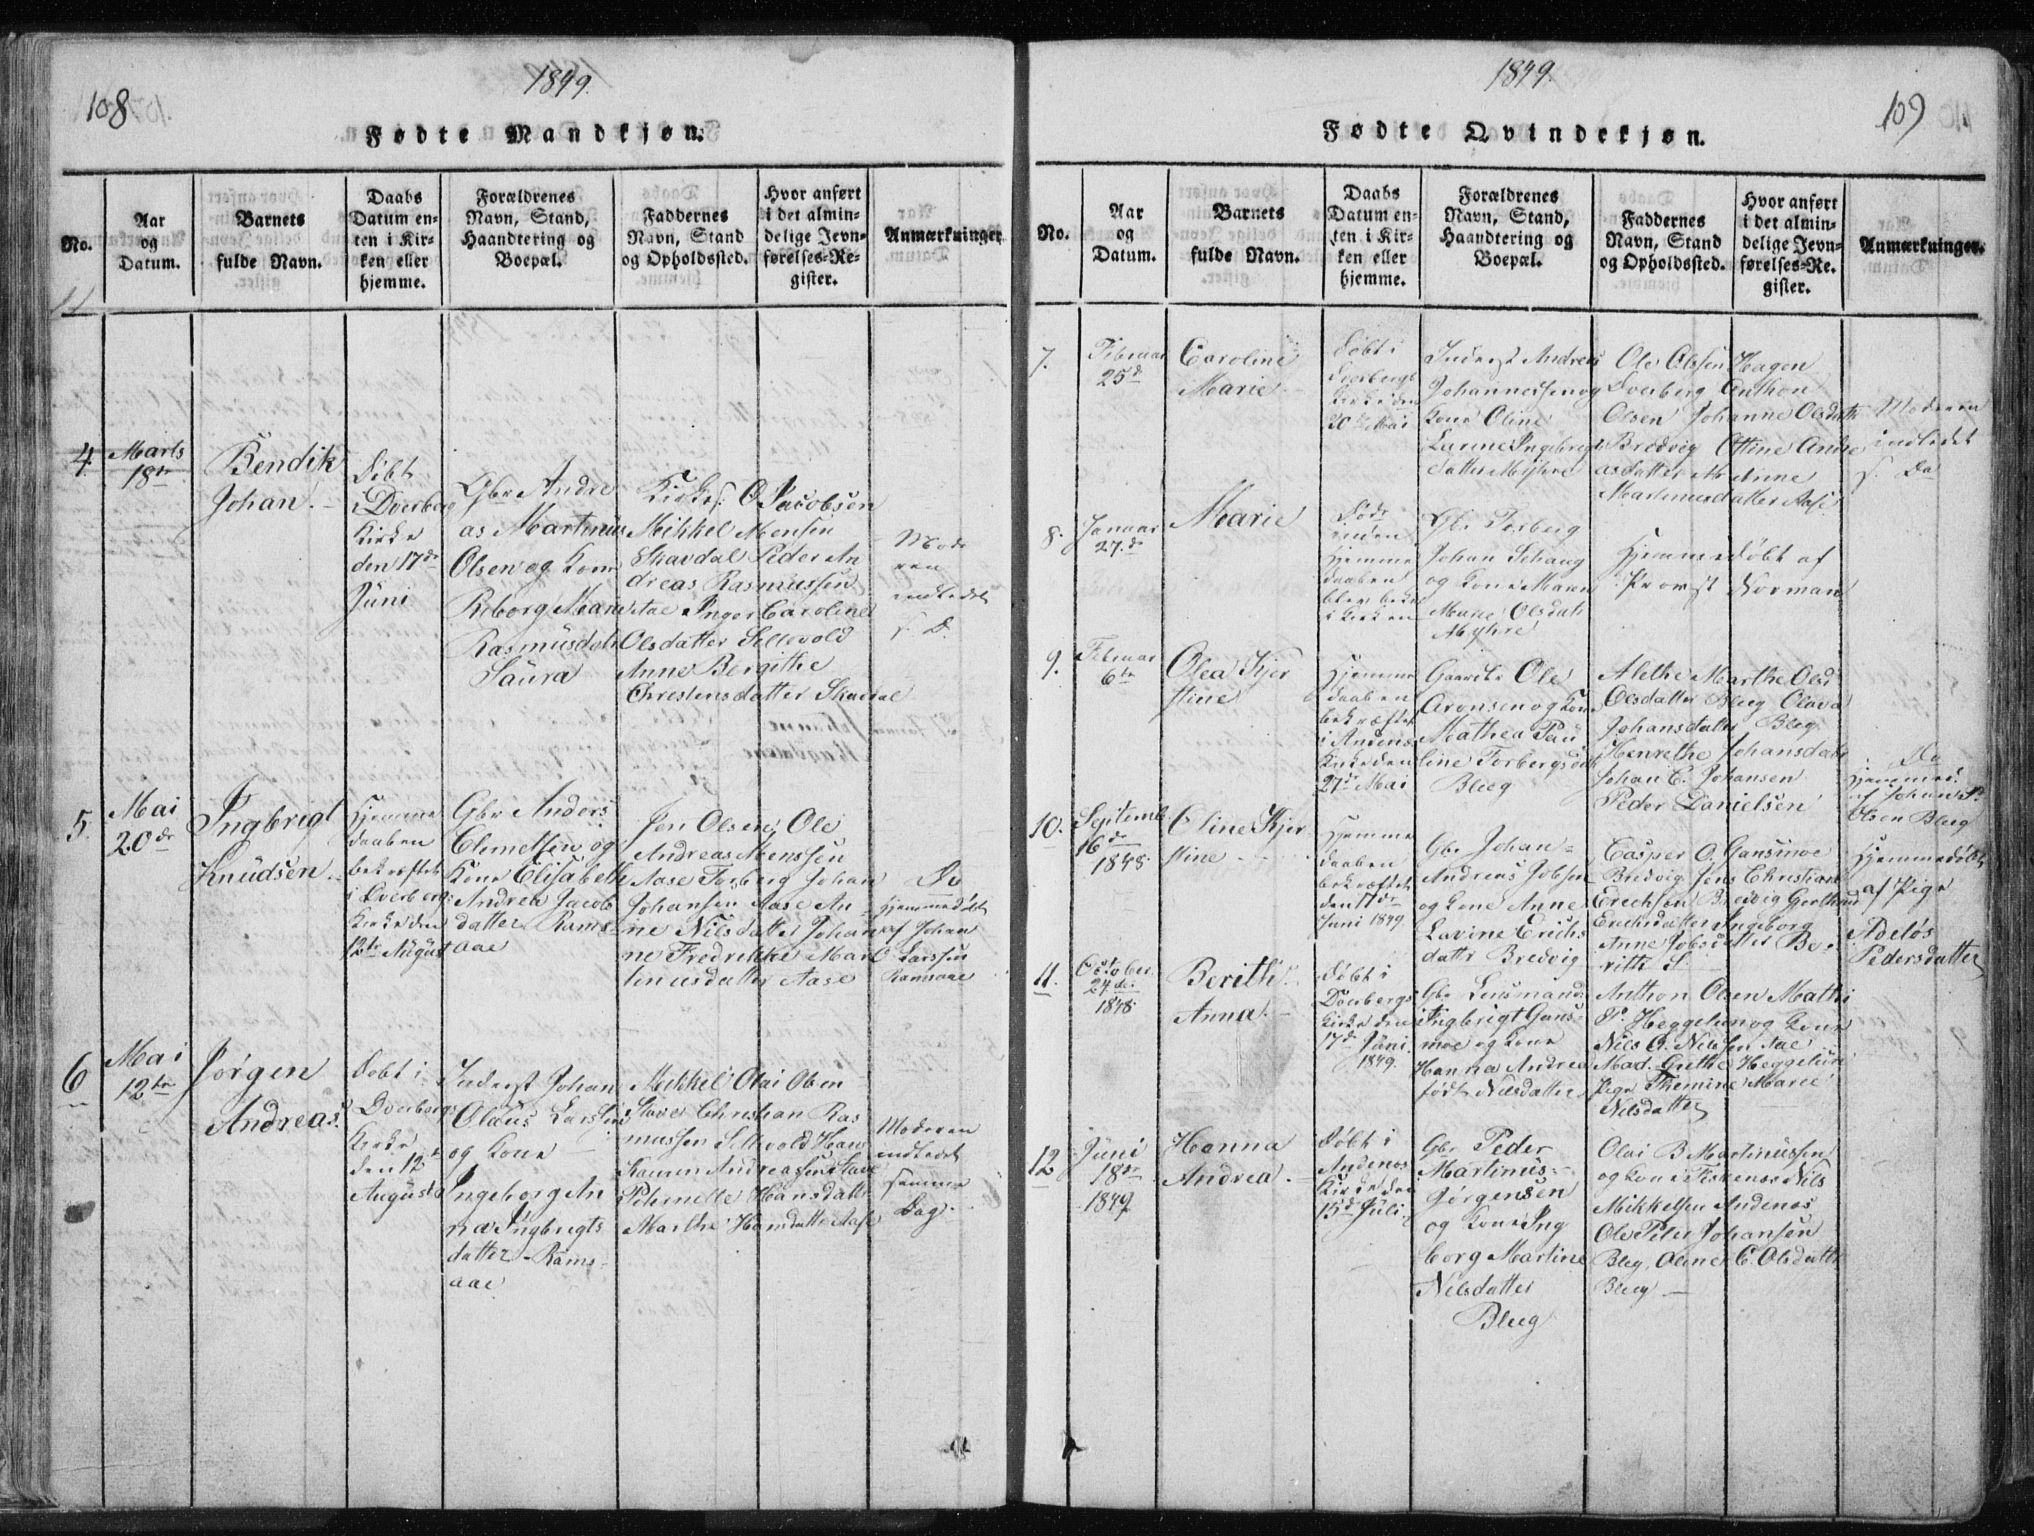 108
1849.
Fødte Mandkjøn.
No.
Aar
og
Datum.
Barnets
fulde Navn.
Daabs
Datum en-
ten i Kir-
ken eller
hjemme.
Forældrenes
Navn, Stand,
Haandtering og
Boepæl.
Faddernes
Navn, Stand
og Opholdssted.
Hvor anført
i det almin-
delige Jevn-
førelses-Re-
gister.
Anmærkninger
4.
Marts
18de
Bendik
Johan.
Døbt
i Dverberg
Kirke
den 17de
Juni
Gbr Andre
as Martinus
Olsen og Kone
Reborg Mar
Rasmusdatt
Saura
Kirkes. O Jacobsen
Mikkel Monsen
Skavdal Peder An
dreas Rasmussen
Inger Caroline
Olsdatter Sellevold
Anne Bergithe
Christensdatter Skavdal
Mode
ren
indledet
s. D.
5.
Mai
20de
Ingbrigt
Knudsen.
Hjemme
daaben
bekræftet
i Dverberg
Kirke den
12te August
Gbr Anders
Clemetsen og
Kone Elisabeth
Andrea Jacobs
datter Rams-
aae
Jon Olsen, Ole
Andreas Monssen
Aase Torberg Johan
Johansen Aase An
ne Nilsdatter Johan
ne Fredrikke Mar
tinusdatter Aase
Do
Hjemmedøbt
af Johan
Larssen
Ramsaae
6
Mai
12te
Jørgen
Andreas.
Døbt i
Dverbergs
Kirke
den 12te
Augusta
Inderst Johan
Olaus Larssen
og Kone
Ingeborg An
na Ingbrigts
datter Rams-
aae
Mikkel Olai Olsen
Stave Christian Ras
mussen Sellevold Hans
Andreassen Stave
Pernelle Hansdatt.
Marthe Hansdatter Aase
Moderen
indledet
samme
Dag.
1849.
109
Fødte Qvindekjøn.
No.
Aar
og
Datum.
Barnets
fulde Navn.
Daabs
Datum en-
ten i Kir-
ken eller
hjemme.
Forældrenes
Navn, Stand,
Haandtering og
Boepæl.
Faddernes
Navn, Stand
og Opholdssted.
Hvor anført
i det almin-
delige Jevn-
førelses-Re-
gister.
Anmærkninger.
7.
Februar
25de
Caroline
Marie
Døbt i
Dverbergs
Kirke den
20de Mai
Inderst Andreas
Johannessen og
Kone Oline
Larine Ingebrigt
datter Myhre
Ole Olsen Hagen
Dverberg Anthon
Olsen Johanne Olsdatt
Bredvig Ottine Andre
asdatter Anne
Martinusdatter Aase
Moderen
indledet
s. Da
8.
Januar
27.de
Marie
Hjemme
daaben
blev bekr
i Kirken
Gbr Torberg
Johan Schaug
og Kone Maren
Marie Olsdatt
Myhre
Hjemmedøbt af
Provst Norman
9.
Februar
6te
Olea Kjer
stine
Hjemme
daaben
bekræftet
i Andenes
Kirke den
27de Mai
Gaardbr Ole
Aronsen og Kone
Mathea Pau
line Torbergsdatt
Bleeg
Alethe Marthe Olsd
Olsdatter Bleeg Olava
Johansdatter Bleeg
Henrethe Johansdatt
Johan C. Johansen
Peder Danielsen
Do
Hjemmed.
af Johan P.
Olsen Bleeg
10.
Septembr
16de
1848.
Oline Kjer
stine
Hjemme
daaben
bekræftet
den 17de
Juni 1849.
Gbr Johan
Andreas Jobsen
og Kone Anne
Lavine Erichs
dattr Bredvig
Casper O. Gansmoe
Bredvig Jens Christian
Erechsen Bredvig Gerthrud
Erichsdatter Ingeborg
Anne Jobsdatter Be-
rith S.
Hjemmedøbt
af Pige
Adeløs
Pedersdatter
11.
October
24de
1848.
Berith
Anna.
Døbt i
Dverbergs
Kirke den
17de Juni
1849.
Gbr Lensmand
Ingbrigt Gans-
moe og Kone
Hanna Andrea
født Nilsdatter
Anthon Olsen Mathi
P. Heggelun og Kone
Nils O. Nilssen Aae
Mad. Grethe Heggelun
Pige Themine Marie
Nilsdatter
12
Juni
18de
1849.
Hanna
Andrea.
Døbt i
Andenes
Kirke den
15de Juli
Gbr Peder
Martinus
Jørgensen
og Kone Ing
borg Martine
Nilsdatter
Bleeg
Olai B Martinussen
og Kone Nils
Mikkelsen Andenes
Ole Peter Johansen
Bleeg, Oline C. Olsdatter
Bleeg